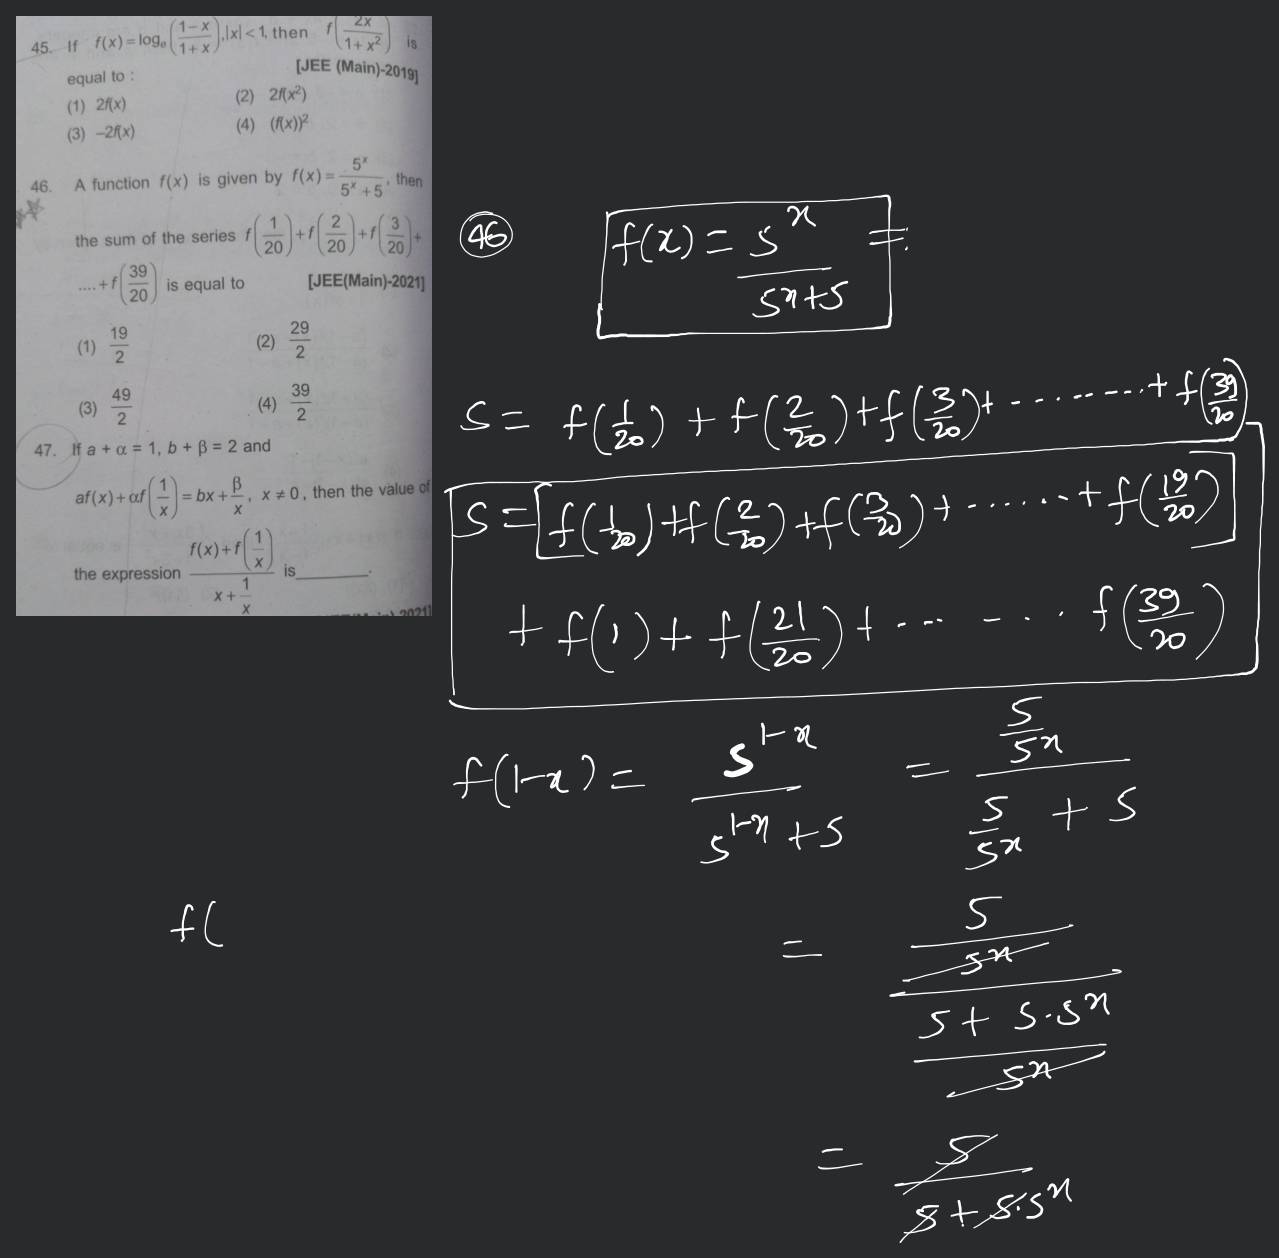 45. If f(x) = logₑ((1-x)/(1+x)), |x| < 1, then f(2x/(1+x²)) is
equal to : [JEE (Main)-2019]
(1) 2f(x) (2) 2f(x²)
(3) –2f(x) (4) (f(x))²
46. A function f(x) is given by f(x) = 5ˣ/(5ˣ+5), then
the sum of the series f(1/20)+f(2/20)+f(3/20)+
....+f(39/20) is equal to [JEE(Main)-2021]
(1) 19/2 (2) 29/2
(3) 49/2 (4) 39/2
47. If a + α = 1, b + β = 2 and
af(x)+αf(1/x) = bx + β/x, x ≠ 0, then the value of
the expression (f(x)+f(1/x))/(x+1/x) is________.
2021]
46 f(x) = 5ˣ/(5ˣ+5) =
S = f(1/20) + f(2/20) + f(3/20) + ......... + f(39/20)
S = [f(1/20) + f(2/20) + f(3/20) + ...... + f(19/20)]
+ f(1) + f(21/20) + ...... f(39/20)
f(1-x) = 5¹⁻ˣ/(5¹⁻ˣ+5) = (5/5ˣ)/(5/5ˣ + 5)
f(
= (5/5ˣ)/((5+5·5ˣ)/5ˣ)
= 5/(5+5·5ˣ)